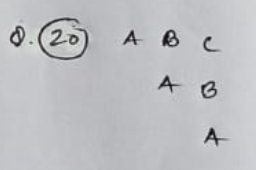 Q. 20 A B C
A B
A